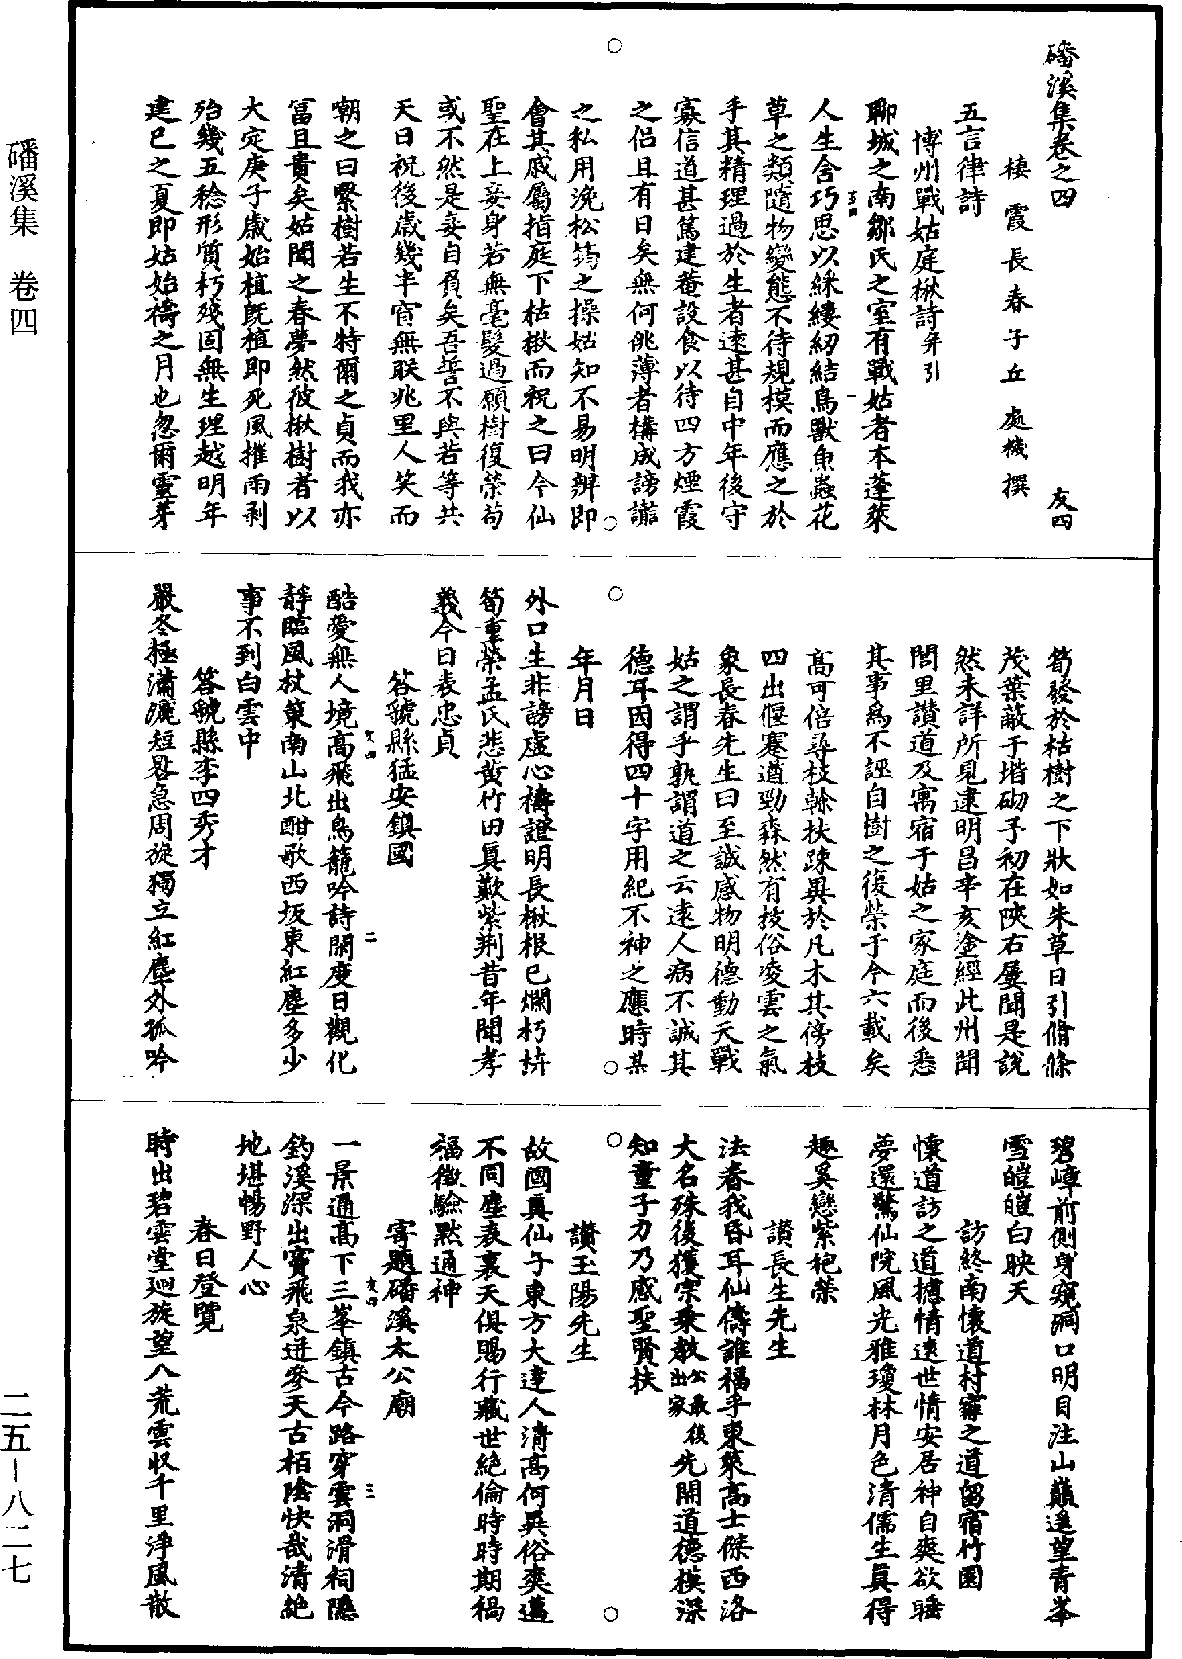 磻溪集卷之四　友四
棲霞長春子丘處機撰
五言律詩
博州戰姑庭楸詩并引
聊城之南鄒氏之室有戰姑者本蓬萊
人生含巧思以綵縷紉結鳥獸魚蟲花
草之類隨物變態不待規模而應之於
手其精理過於生者遠甚自中年後守
寡信道甚篤建菴設食以待四方煙霞
之侶且有日矣無何佻薄者構成謗讟
之私用浼松筠之操姑知不易明辨即
會其戚屬指庭下枯楸而祝之曰今仙
聖在上妾身若無毫髮過願樹復榮苟
或不然是妾自負矣吾誓不與若等共
天日祝後歲幾半窅無朕兆里人笑而
嘲之曰繄樹若生不特爾之貞而我亦
富且貴矣姑聞之春夢然彼楸樹者以
大定庚子歲始植既植即死風摧雨剥
殆幾五稔形質朽殘固無生理越明年
建巳之夏即姑始禱之月也忽爾靈芽
筍發於枯樹之下狀如朱草日引脩條
茂葉蔽于堦砌予初在陝右屢聞是說
然未詳所見逮明昌辛亥塗經此州聞
閭里讃道及寓宿于姑之家庭而後悉
其事爲不誣自樹之復榮于今六載矣
高可倍尋枝榦扶踈異於凡木其傍枝
四出偃蹇遒勁森然有拔俗凌雲之氣
象長春先生曰至誠感物明德動天戰
姑之謂乎孰謂道之云遠人病不誠其
德耳因得四十字用紀不神之應時某
年月日
外口生非謗虛心禱證明長楸根已爛朽枿
筍重榮孟氏悲黃竹田真歎紫荆昔年聞孝
義今日表忠貞
答虢縣猛安鎮國
酷愛無人境高飛出鳥籠吟詩閑度日觀化
靜臨風杖策南山北酣歌西坂東紅塵多少
事不到白雲中
答虢縣李四秀才
嚴冬極瀟灑短晷急周旋獨立紅塵外孤吟
碧嶂前側身窺洞口明目注山巔遥望青峯
雪皚皚白映天
訪終南懷道村霫之道留宿竹園
懷道訪之道攄情遠世情安居神自爽欲睡
夢還驚仙院風光雅瓊林月色清儒生真得
趣奚戀紫袍榮
讃長生先生
法春我昏耳仙儔誰褐乎東萊高士傑西洛
大名殊後獲宗乘教公最後出家先開道德模深
知童子力乃感聖賢扶
讃玉陽先生
故國真仙子東方大達人清高何異俗爽邁
不同塵表裏天俱賜行藏世絶倫時時期禍
福徵驗黙通神
寄題磻溪太公廟
一景通高下三峯鎮古今路穿雲洞滑祠隱
釣溪深出竇飛泉迸參天古栢陰快哉清絶
地堪暢野人心
春日登覽
時出碧雲堂廻旋望八荒雲収千里淨風散
磻溪集　卷四
二五－八二七
友四
一
友四
二
友四
三